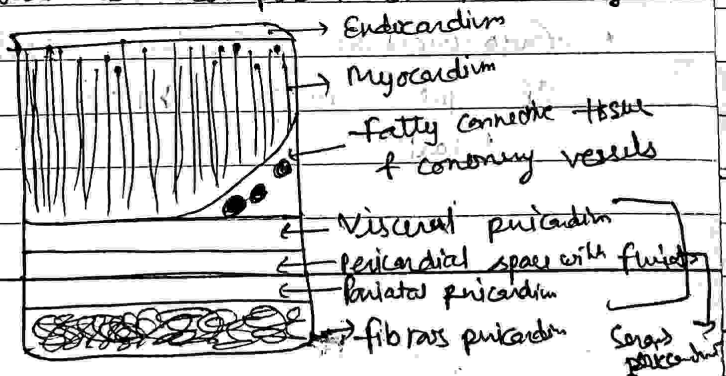 Endocardium
Myocardium
Fatty connective tissue
& coronary vessels
Visceral pricardim
Pericardial space with fluids
Pariatal pricardim
fibrous pricardim
Serous
pericardium